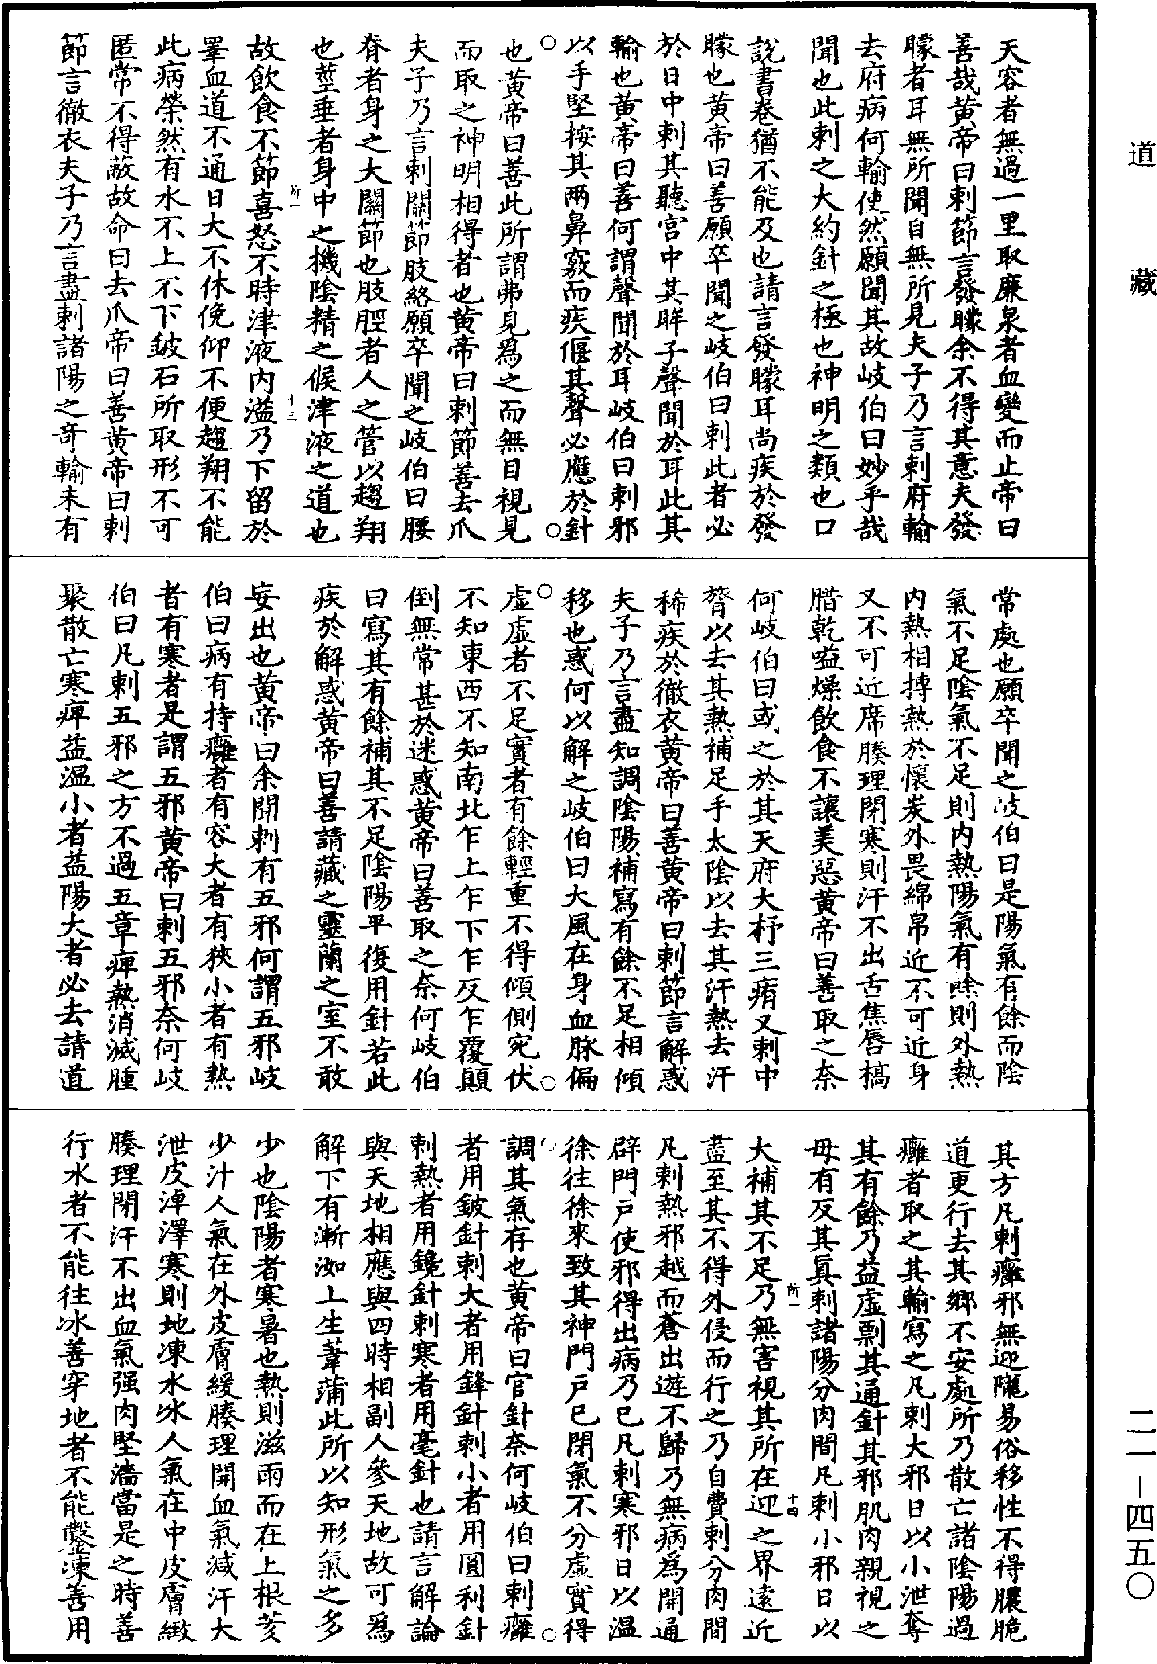 道藏
天容者無過一里取廉泉者血變而止帝曰
善哉黃帝曰刺節言發矇余不得其意夫發
矇者耳無所聞目無所見夫子乃言刺府輸
去府病何輸使然願聞其故岐伯曰妙乎哉
聞也此刺之大約針之極也神明之類也口
說書卷猶不能及也請言發矇耳尚疾於發
矇也黃帝曰善願卒聞之岐伯曰刺此者必
於日中刺其聽宮中其眸子聲聞於耳此其
輸也黃帝曰善何謂聲聞於耳岐伯曰刺邪
以手堅按其兩鼻竅而疾偃其聲必應於針
也黃帝曰善此所謂弗見為之而無目視見
而取之神明相得者也黃帝曰刺節善去爪
夫子乃言刺關節肢絡願卒聞之岐伯曰腰
脊者身之大關節也肢脛者人之管以趨翔
也莖垂者身中之機陰精之候津液之道也
故飲食不節喜怒不時津液內溢乃下留於
睪血道不通日大不休俛仰不便趨翔不能
此病榮然有水不上不下鈹石所取形不可
匿常不得蔽故命曰去爪帝曰善黃帝曰刺
節言徹衣夫子乃言盡刺諸陽之奇輸未有
所一
十三
常處也願卒聞之岐伯曰是陽氣有餘而陰
氣不足陰氣不足則內熱陽氣有餘則外熱
內熱相搏熱於懷炭外畏綿帛近不可近身
又不可近席腠理閉塞則汗不出舌焦唇槁
腊乾嗌燥飲食不讓美惡黃帝曰善取之奈
何岐伯曰或之於其天府大杼三痏又刺中
膂以去其熱補足手太陰以去其汗熱去汗
稀疾於徹衣黃帝曰善黃帝曰刺節言解惑
夫子乃言盡知調陰陽補寫有餘不足相傾
移也惑何以解之岐伯曰大風在身血脉偏
虛虛者不足實者有餘輕重不得傾側宛伏
不知東西不知南北乍上乍下乍反乍覆顛
倒無常甚於迷惑黃帝曰善取之奈何岐伯
曰寫其有餘補其不足陰陽平復用針若此
疾於解惑黃帝曰善請藏之靈蘭之室不敢
妄出也黃帝曰余聞刺有五邪何謂五邪岐
伯曰病有持癰者有容大者有狹小者有熱
者有寒者是謂五邪黃帝曰刺五邪奈何岐
伯曰凡刺五邪之方不過五章癉熱消滅腫
聚散亡寒痺益溫小者益陽大者必去請道
其方凡刺癰邪無迎隴易俗移性不得膿脆
道更行去其鄉不安處所乃散亡諸陰陽過
癰者取之其輸寫之凡刺大邪日以小泄奪
其有餘乃益虛剽其通針其邪肌肉親視之
毋有反其真刺諸陽分肉間凡刺小邪日以
大補其不足乃無害視其所在迎之界遠近
盡至其不得外侵而行之乃自費刺分肉間
凡刺熱邪越而蒼出遊不歸乃無病為開通
辟門戶使邪得出病乃已凡刺寒邪日以溫
徐往徐來致其神門戶已閉氣不分虛實得
調其氣存也黃帝曰官針奈何岐伯曰刺癰
者用鈹針刺大者用鋒針刺小者用圓利針
刺熱者用鑱針刺寒者用毫針也請言解論
與天地相應與四時相副人參天地故可為
解下有漸洳上生葦蒲此所以知形氣之多
少也陰陽者寒暑也熱則滋雨而在上根荄
少汁人氣在外皮膚緩腠理開血氣減汗大
泄皮淖澤寒則地凍水冰人氣在中皮膚緻
腠理閉汗不出血氣强肉堅濇當是之時善
行水者不能往冰善穿地者不能鑿凍善用
所一
十四
二一－四五〇